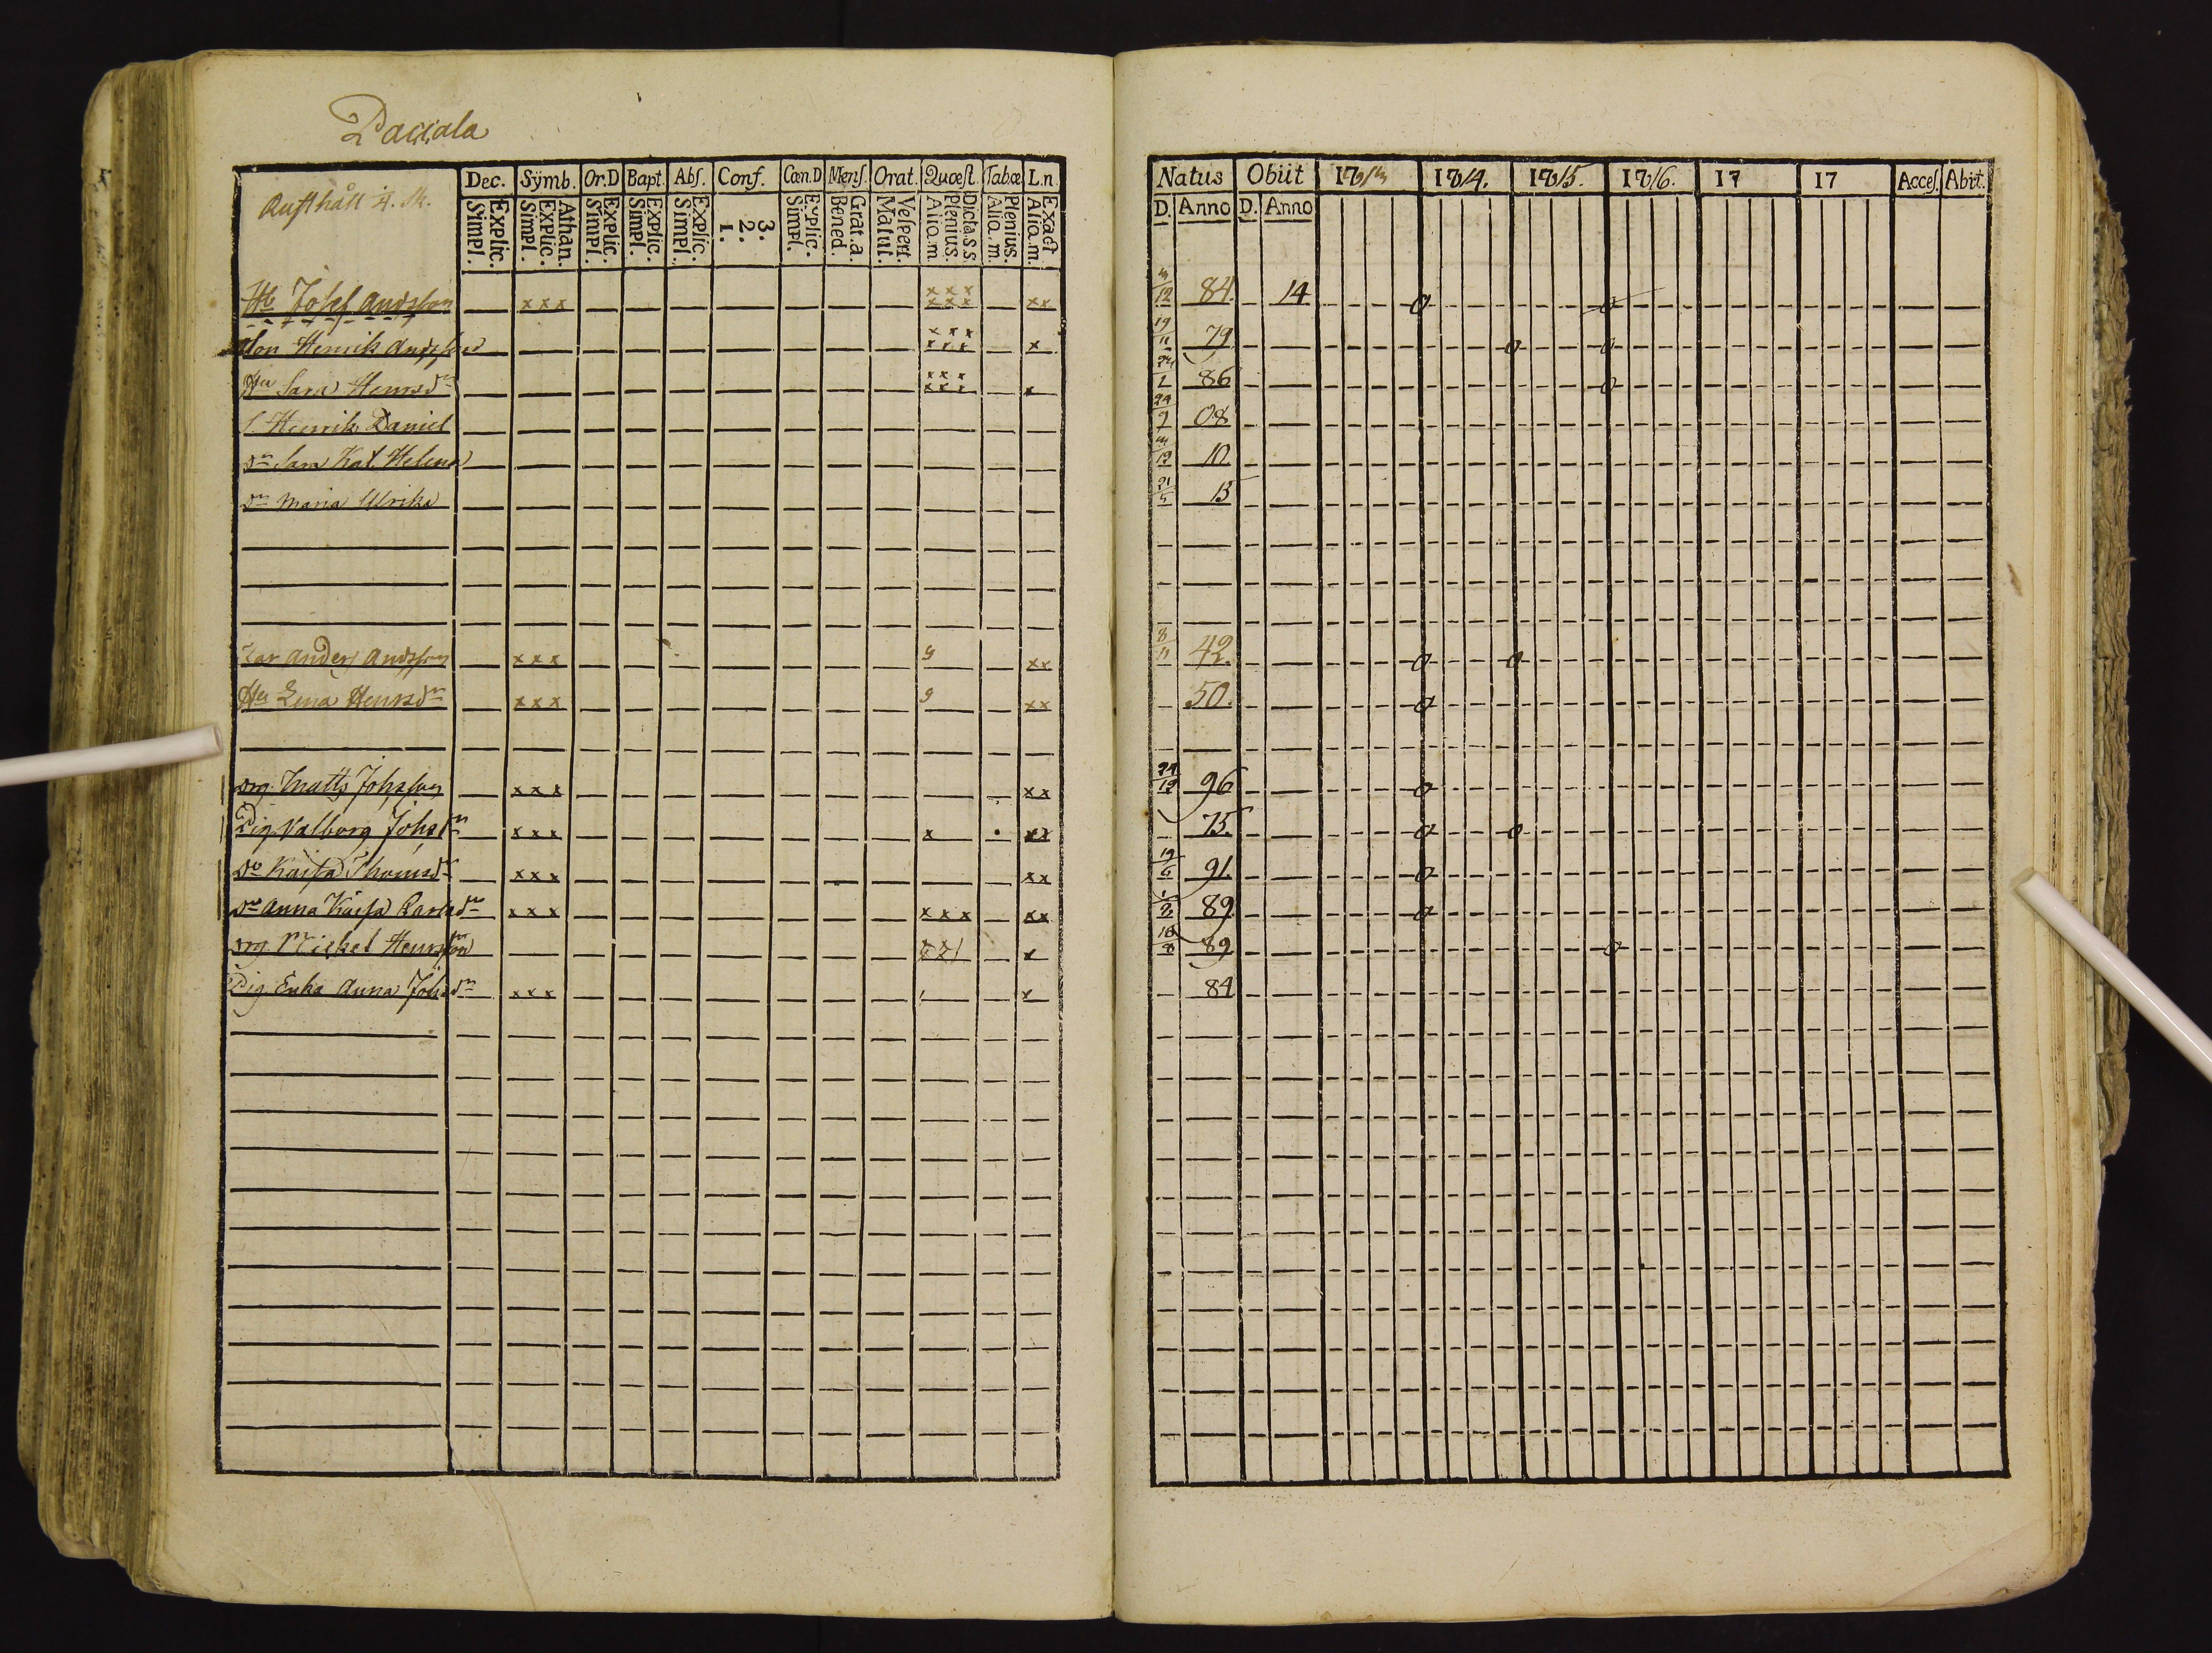 Paccala
Rusthåll 4. M.
Dec. Sÿmb. Or.D Bapt. Abſ. Conf. Cœn.D Menſ. Orat. Quœſt. Tabœ L.n
Explic. Simpl. Athan. Explic. Simpl. Explic. Simpl. Explic. Simpl. Explic. Simpl. 3. 2. 1. Explic. Simpl. Grat. a. Bened. Veſpert. Matut. Dicta.S.S. Plenius. Alio.m. Plenius. Alio.m. Exact Alio.m.
Hb Josef Andsson xxx xxx xxx xx
Son Henrik Andsson xxx xxx x
Hu Sara Henrsdr xxx xxx x
S. Henrik Daniel
Dr Sara Kat. Helena
Dr Maria Ulrika
Far Anders Andsson xxx g xx
Hu Lena Henrsdr xxx g xx
Drg Matts Johsson xxx xx
Pig. Valborg Johsdr xxx x xx
Do Kaisa Thomsdr xxx xx
Do Anna Kaisa xxx xxx xx
Drg Mickel Henrsson x
Pig Enka Anna Johsdr xxx x
Natus Obiit 1814. 1815. 1816. 17 17 Acceſ. Abiit.
D. Anno D. Anno
84. 14 o o
19/11 79 o o
86 o
08
10
21/5 15
8/11 42. o o
50. o
24/12 96 o
75. o o
19/6 91. o
89 o
89 o
84